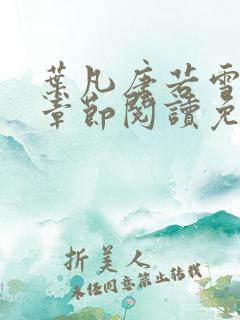 葉凡唐若雪
章節閱讀免
折美人
未经同意禁止转载